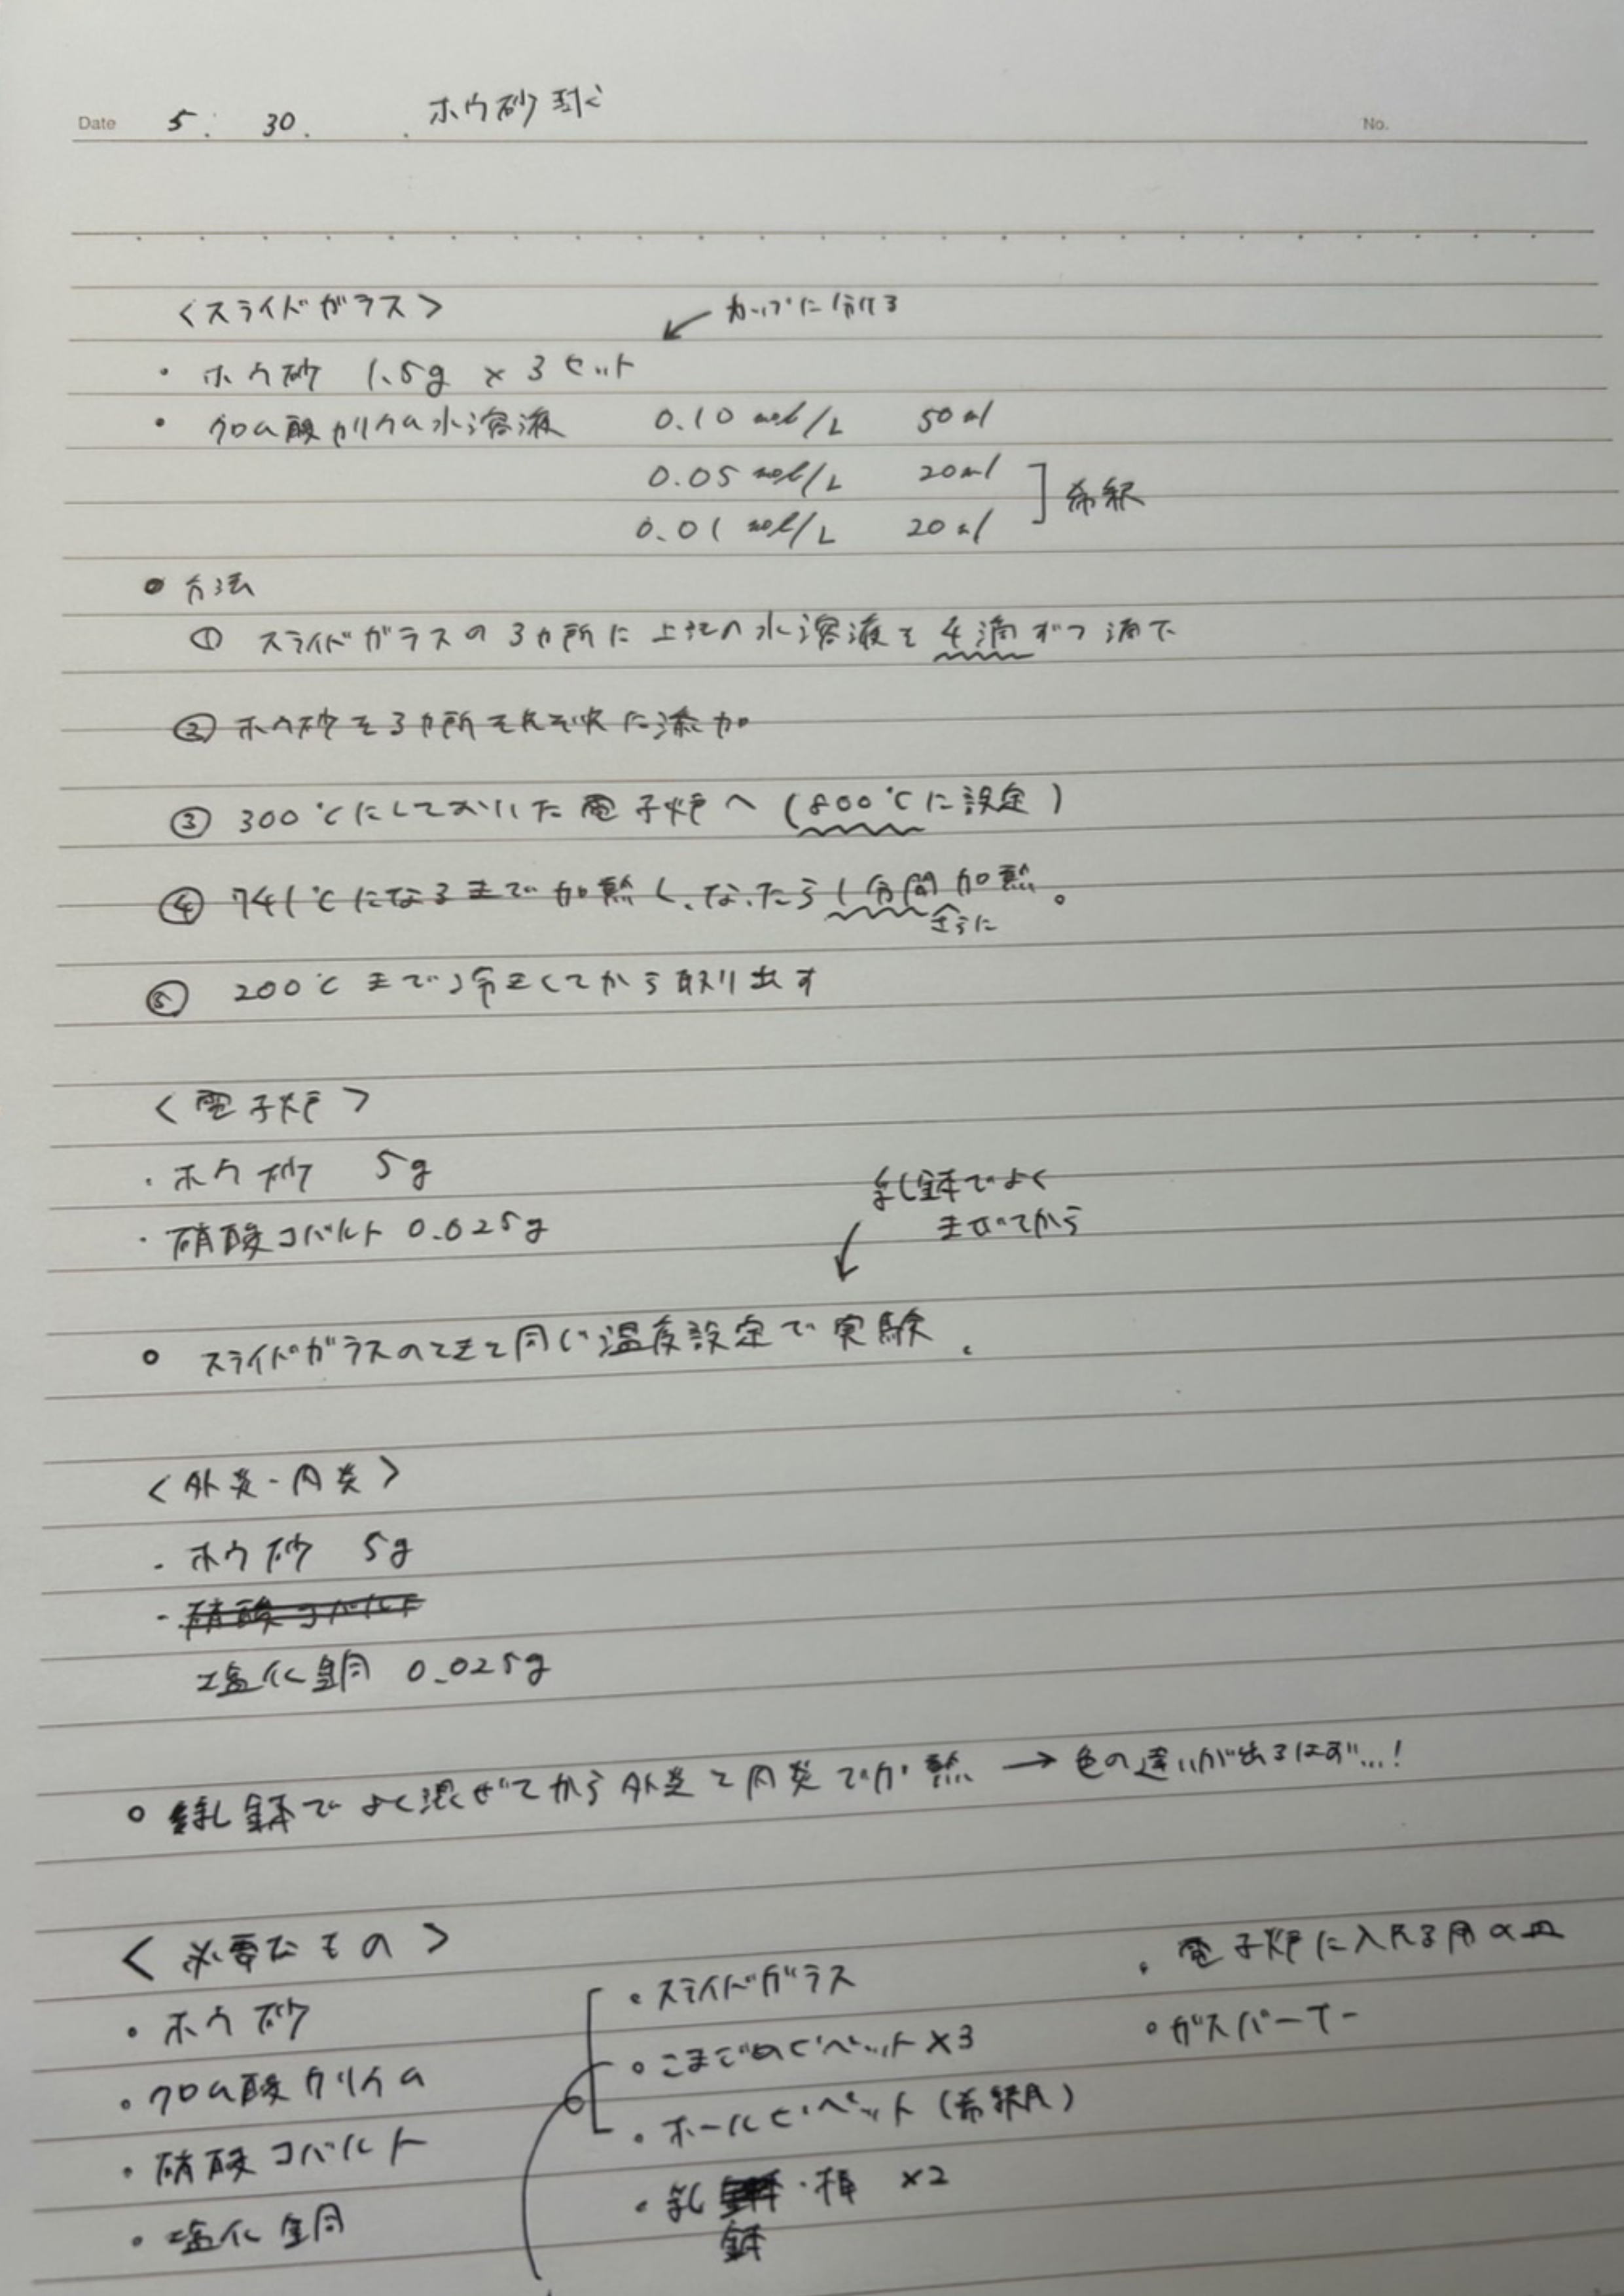 Date 5. 30. . ホウ砂球 No.
<スライドガラス> ← カップに分ける
・ ホウ砂 1.5g × 3セット
・ クロム酸カリウム水溶液 0.10 mol/L 50ml
0.05 mol/L 20ml
0.01 mol/L 20ml ] 希釈
● 方法
① スライドガラスの3カ所に上記の水溶液を4滴ずつ滴下
② ホウ砂を3カ所それぞれに添加
③ 300℃にしておいた電子炉へ (800℃に設定)
④ 741℃になるまで加熱し、なったら1分間加熱。
さらに
⑤ 200℃まで冷まてから取り出す
<電子炉>
・ホウ砂 5g
・硝酸コバルト 0.025g
乳鉢でよく
まぜてから
↓
○ スライドガラスのときと同じ温度設定で実験.
<外炎・内炎>
・ホウ砂 5g
・硝酸コバルト
塩化銅 0.025g
○ 乳鉢でよく混ぜてから外炎と内炎で加熱 → 色の違いが出るはず…!
<必要なもの>
・ホウ砂
・クロム酸カリウム
・硝酸コバルト
・塩化銅
・スライドガラス
・こまごめピペット×3
・ホールピペット(希釈用)
・乳鉢・棒 ×2
・電子炉に入れる用の皿
・ガスバーナー